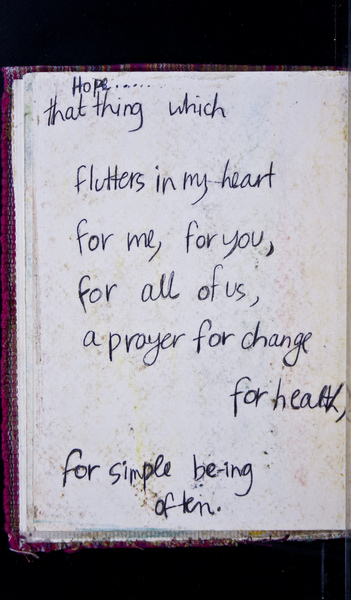 Hope......
that thing which
flutters in my heart
for me, for you,
for all of us,
a prayer for change
for health,
for simple be-ing
often.